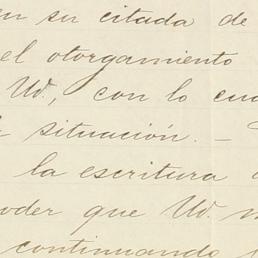 en su citada de
el otorgamiento
Ud., con lo cua
situación. –
la escritura
oder que Ud. n
continuando